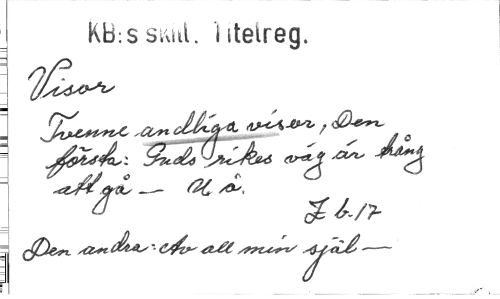 KB:s skill. Titelreg.
Visor
Tvenne andliga visor, Den
första: Guds rikes väg är trång
att gå — U å.
Z b-17
Den andra: Av all min själ —